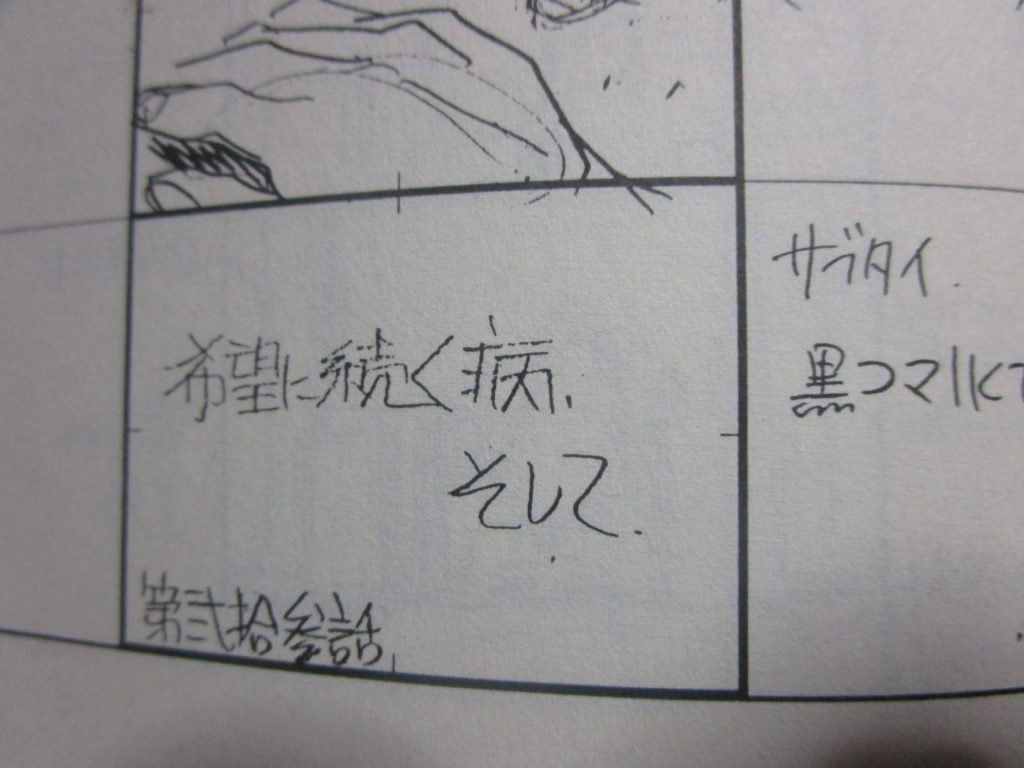 希望に続く病、
そして.
第弐拾参話
サブタイ.
黒コマ